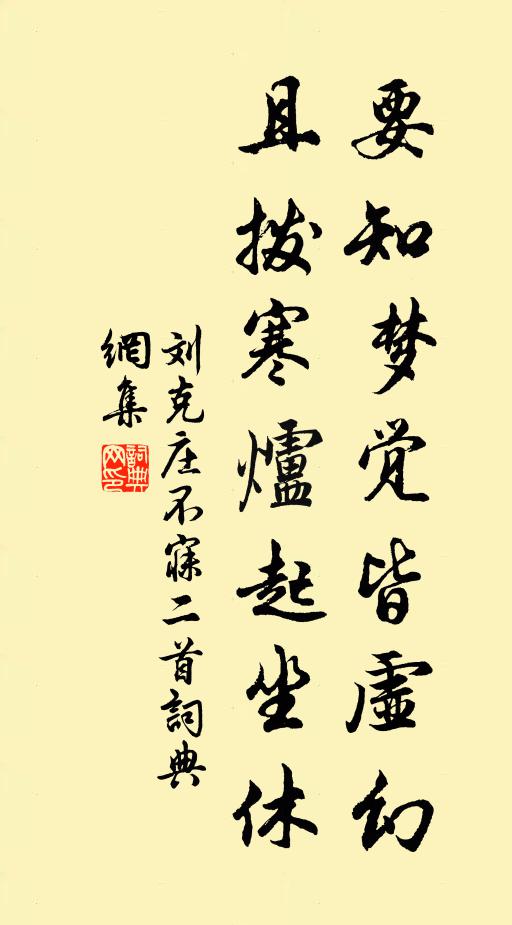 要知梦觉皆虚幻
且拨寒爐起坐休
刘克庄不寐二首詞典
網集
詞典
网印